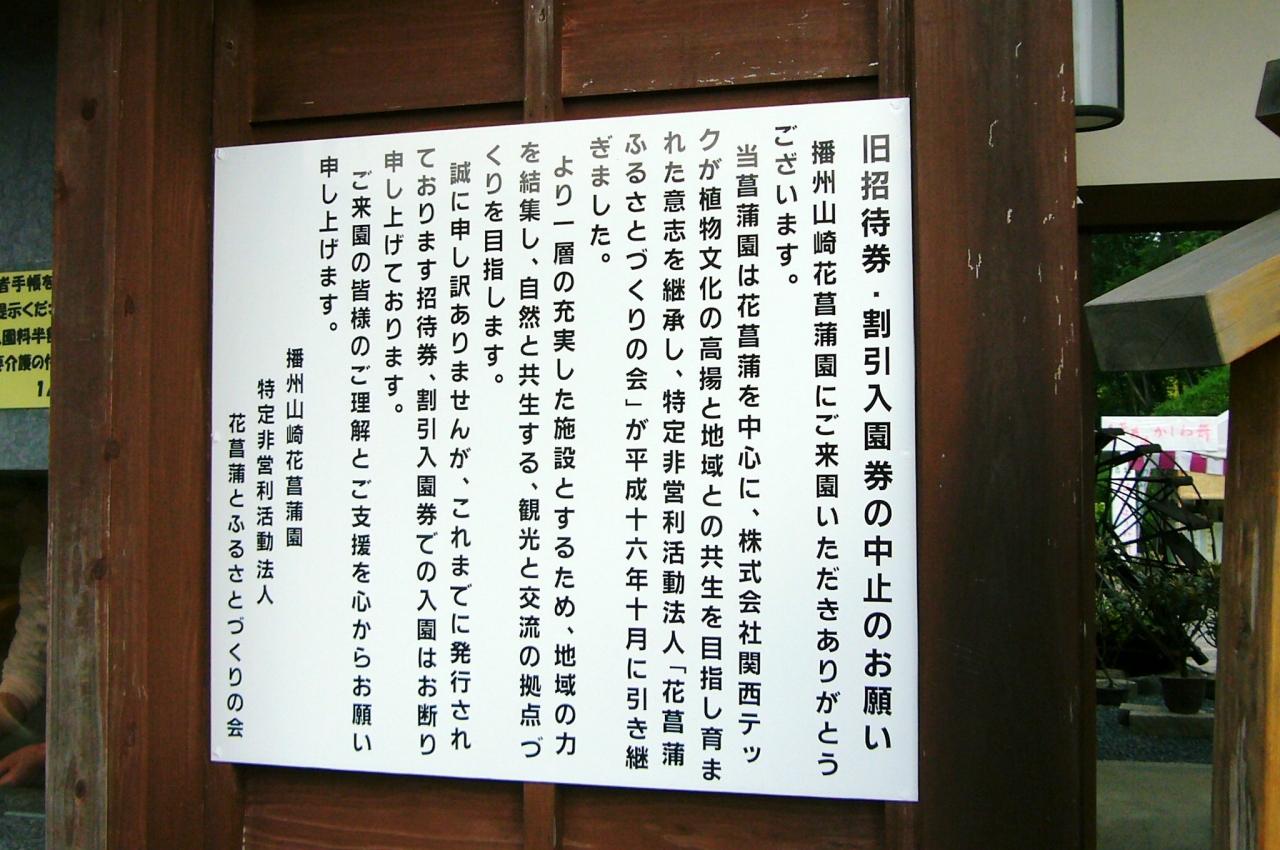 旧招待券・割引入園券の中止のお願い
播州山崎花菖蒲園にご来園いただきありがとう
ございます。
当菖蒲園は花菖蒲を中心に、株式会社関西テッ
クが植物文化の高揚と地域との共生を目指し育ま
れた意志を継承し、特定非営利活動法人「花菖蒲
ふるさとづくりの会」が平成十六年十月に引き継
ぎました。
より一層の充実した施設とするため、地域の力
を結集し、自然と共生する、観光と交流の拠点づ
くりを目指します。
誠に申し訳ありませんが、これまでに発行され
ております招待券、割引入園券での入園はお断り
申し上げております。
ご来園の皆様のご理解とご支援を心からお願い
申し上げます。
播州山崎花菖蒲園
特定非営利活動法人
花菖蒲とふるさとづくりの会
者手帳を
園料半
介護の